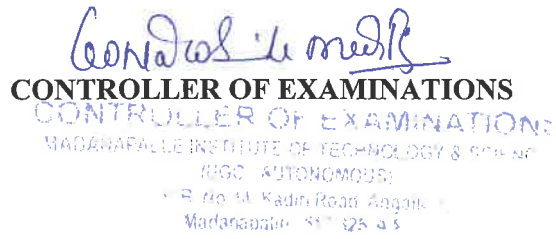 CONTROLLER OF EXAMINATIONS
CONTROLLER OF EXAMINATIONS
MADANAPALLE INSTITUTE OF TECHNOLOGY & SCIENC
(UGC - AUTONOMOUS)
Kadiri Road,
Madanapalle